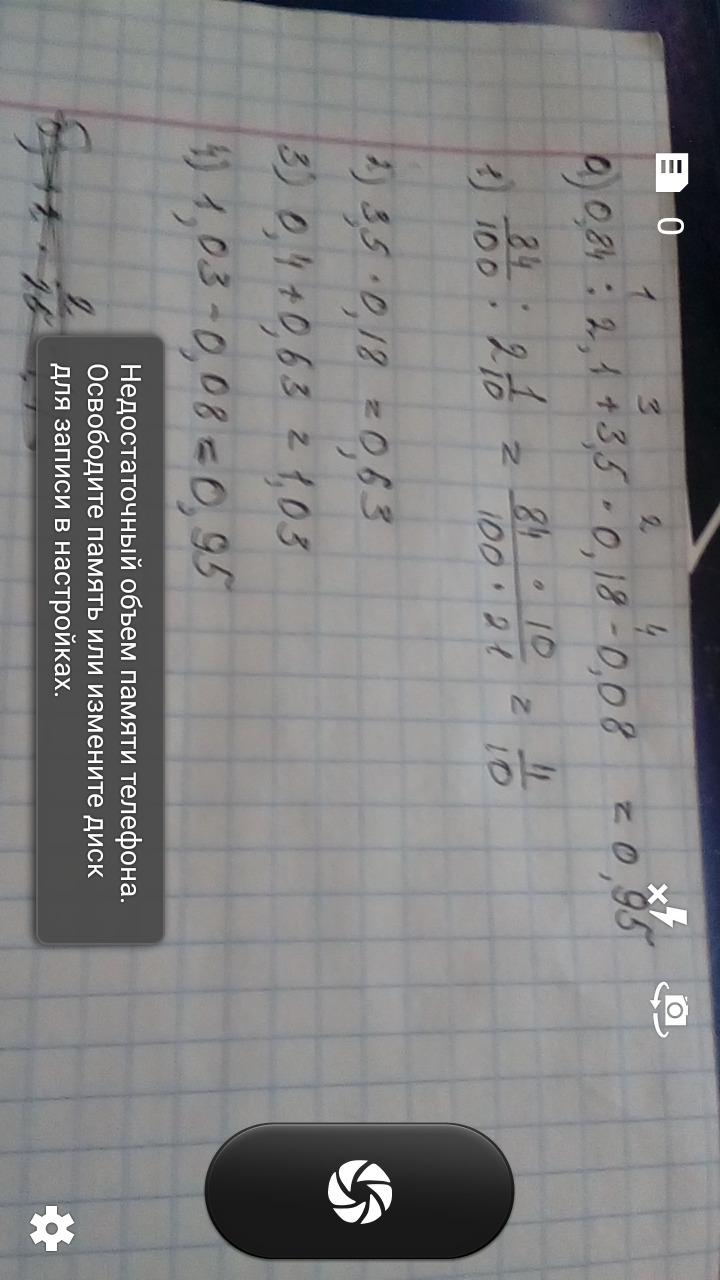 0
1 3 2 4
а) 0,84 : 2,1 + 3,5 · 0,18 - 0,08 = 0,95
1) 84/100 : 2 1/10 = 84 · 10/100 · 21 = 4/10
2) 3,5 · 0,18 = 0,63
3) 0,4 + 0,63 = 1,03
4) 1,03 - 0,08 = 0,95
Недостаточный объем памяти телефона.
Освободите память или измените диск
для записи в настройках.